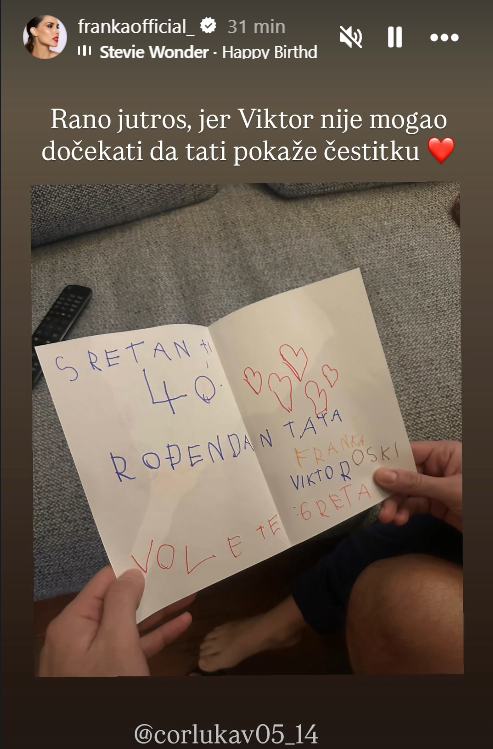 frankaofficial_ 31 min
Stevie Wonder · Happy Birthd
Rano jutros, jer Viktor nije mogao
dočekati da tati pokaže čestitku ❤️
SRETAN ti
40.
ROĐENDAN TATA
FRANKA
VIKTOR OSKI
VOLE TE :GRETA
@corlukav05_14